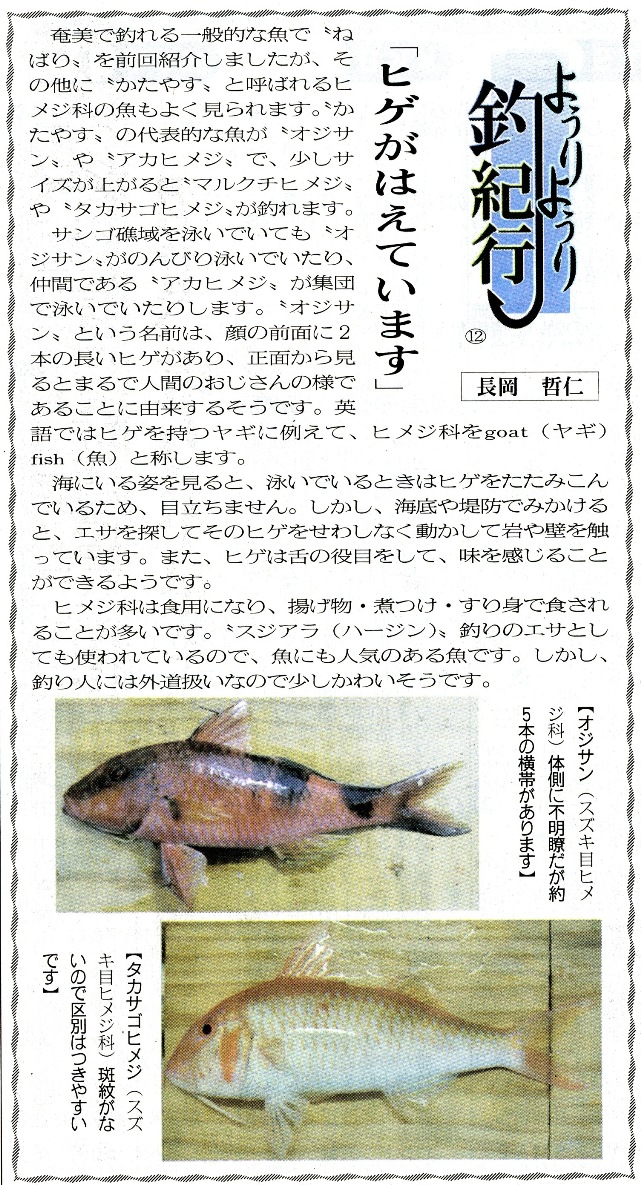 ようりようり
釣紀行
⑫
長岡　哲仁
「ヒゲがはえています」
　奄美で釣れる一般的な魚で〝ね
ばり〟を前回紹介しましたが、そ
の他に〝かたやす〟と呼ばれるヒ
メジ科の魚もよく見られます。〝か
たやす〟の代表的な魚が〝オジサ
ン〟や〝アカヒメジ〟で、少しサ
イズが上がると〝マルクチヒメジ〟
や〝タカサゴヒメジ〟が釣れます。
　サンゴ礁域を泳いでいても〝オ
ジサン〟がのんびり泳いでいたり、
仲間である〝アカヒメジ〟が集団
で泳いでいたりします。〝オジサ
ン〟という名前は、顔の前面に２
本の長いヒゲがあり、正面から見
るとまるで人間のおじさんの様で
あることに由来するそうです。英
語ではヒゲを持つヤギに例えて、ヒメジ科をgoat（ヤギ）
fish（魚）と称します。
　海にいる姿を見ると、泳いでいるときはヒゲをたたみこん
でいるため、目立ちません。しかし、海底や堤防でみかける
と、エサを探してそのヒゲをせわしなく動かして岩や壁を触
っています。また、ヒゲは舌の役目をして、味を感じること
ができるようです。
　ヒメジ科は食用になり、揚げ物・煮つけ・すり身で食され
ることが多いです。〝スジアラ（ハージン）〟釣りのエサとし
ても使われているので、魚にも人気のある魚です。しかし、
釣り人には外道扱いなので少しかわいそうです。
【オジサン（スズキ目ヒメ
ジ科）体側に不明瞭だが約
５本の横帯があります】
【タカサゴヒメジ（スズ
キ目ヒメジ科）斑紋がな
いので区別はつきやすい
です】